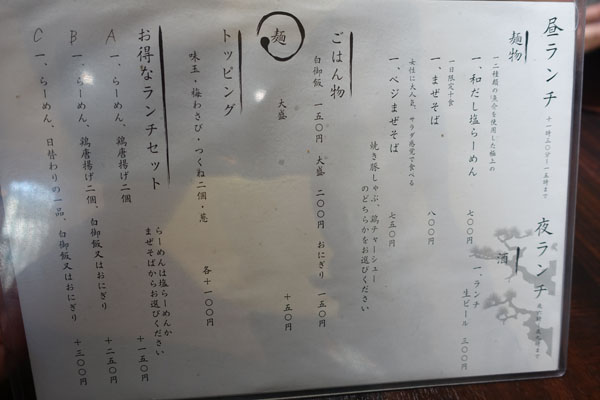 昼ランチ 十一時三〇分〜一五時まで
麺物
一二種類の魚介を使用した極上の
一、和だし塩らーめん 七〇〇円
一日限定十食
一、まぜそば。 八〇〇円
女性に大人気、サラダ感覚で食べる
一、ベジまぜそば 七五〇円
焼き豚しゃぶ、鶏チャーシュー
のどちらかをお選びください
夜ランチ
酒
一、ランチ
生ビール 三〇〇円
ごはん物
白御飯 一五〇円 大盛 二〇〇円 おにぎり 一五〇円
麺
大盛 +五〇円
トッピング
味玉・梅わさび・つくね二個・葱 各+一〇〇円
お得なランチセット
らーめんは塩らーめんか
まぜそばからお選びください
A 一、らーめん、鶏唐揚げ二個 +一五〇円
B 一、らーめん、鶏唐揚げ二個、白御飯又はおにぎり +二五〇円
C 一、らーめん、日替わりの一品、白御飯又はおにぎり +三〇〇円